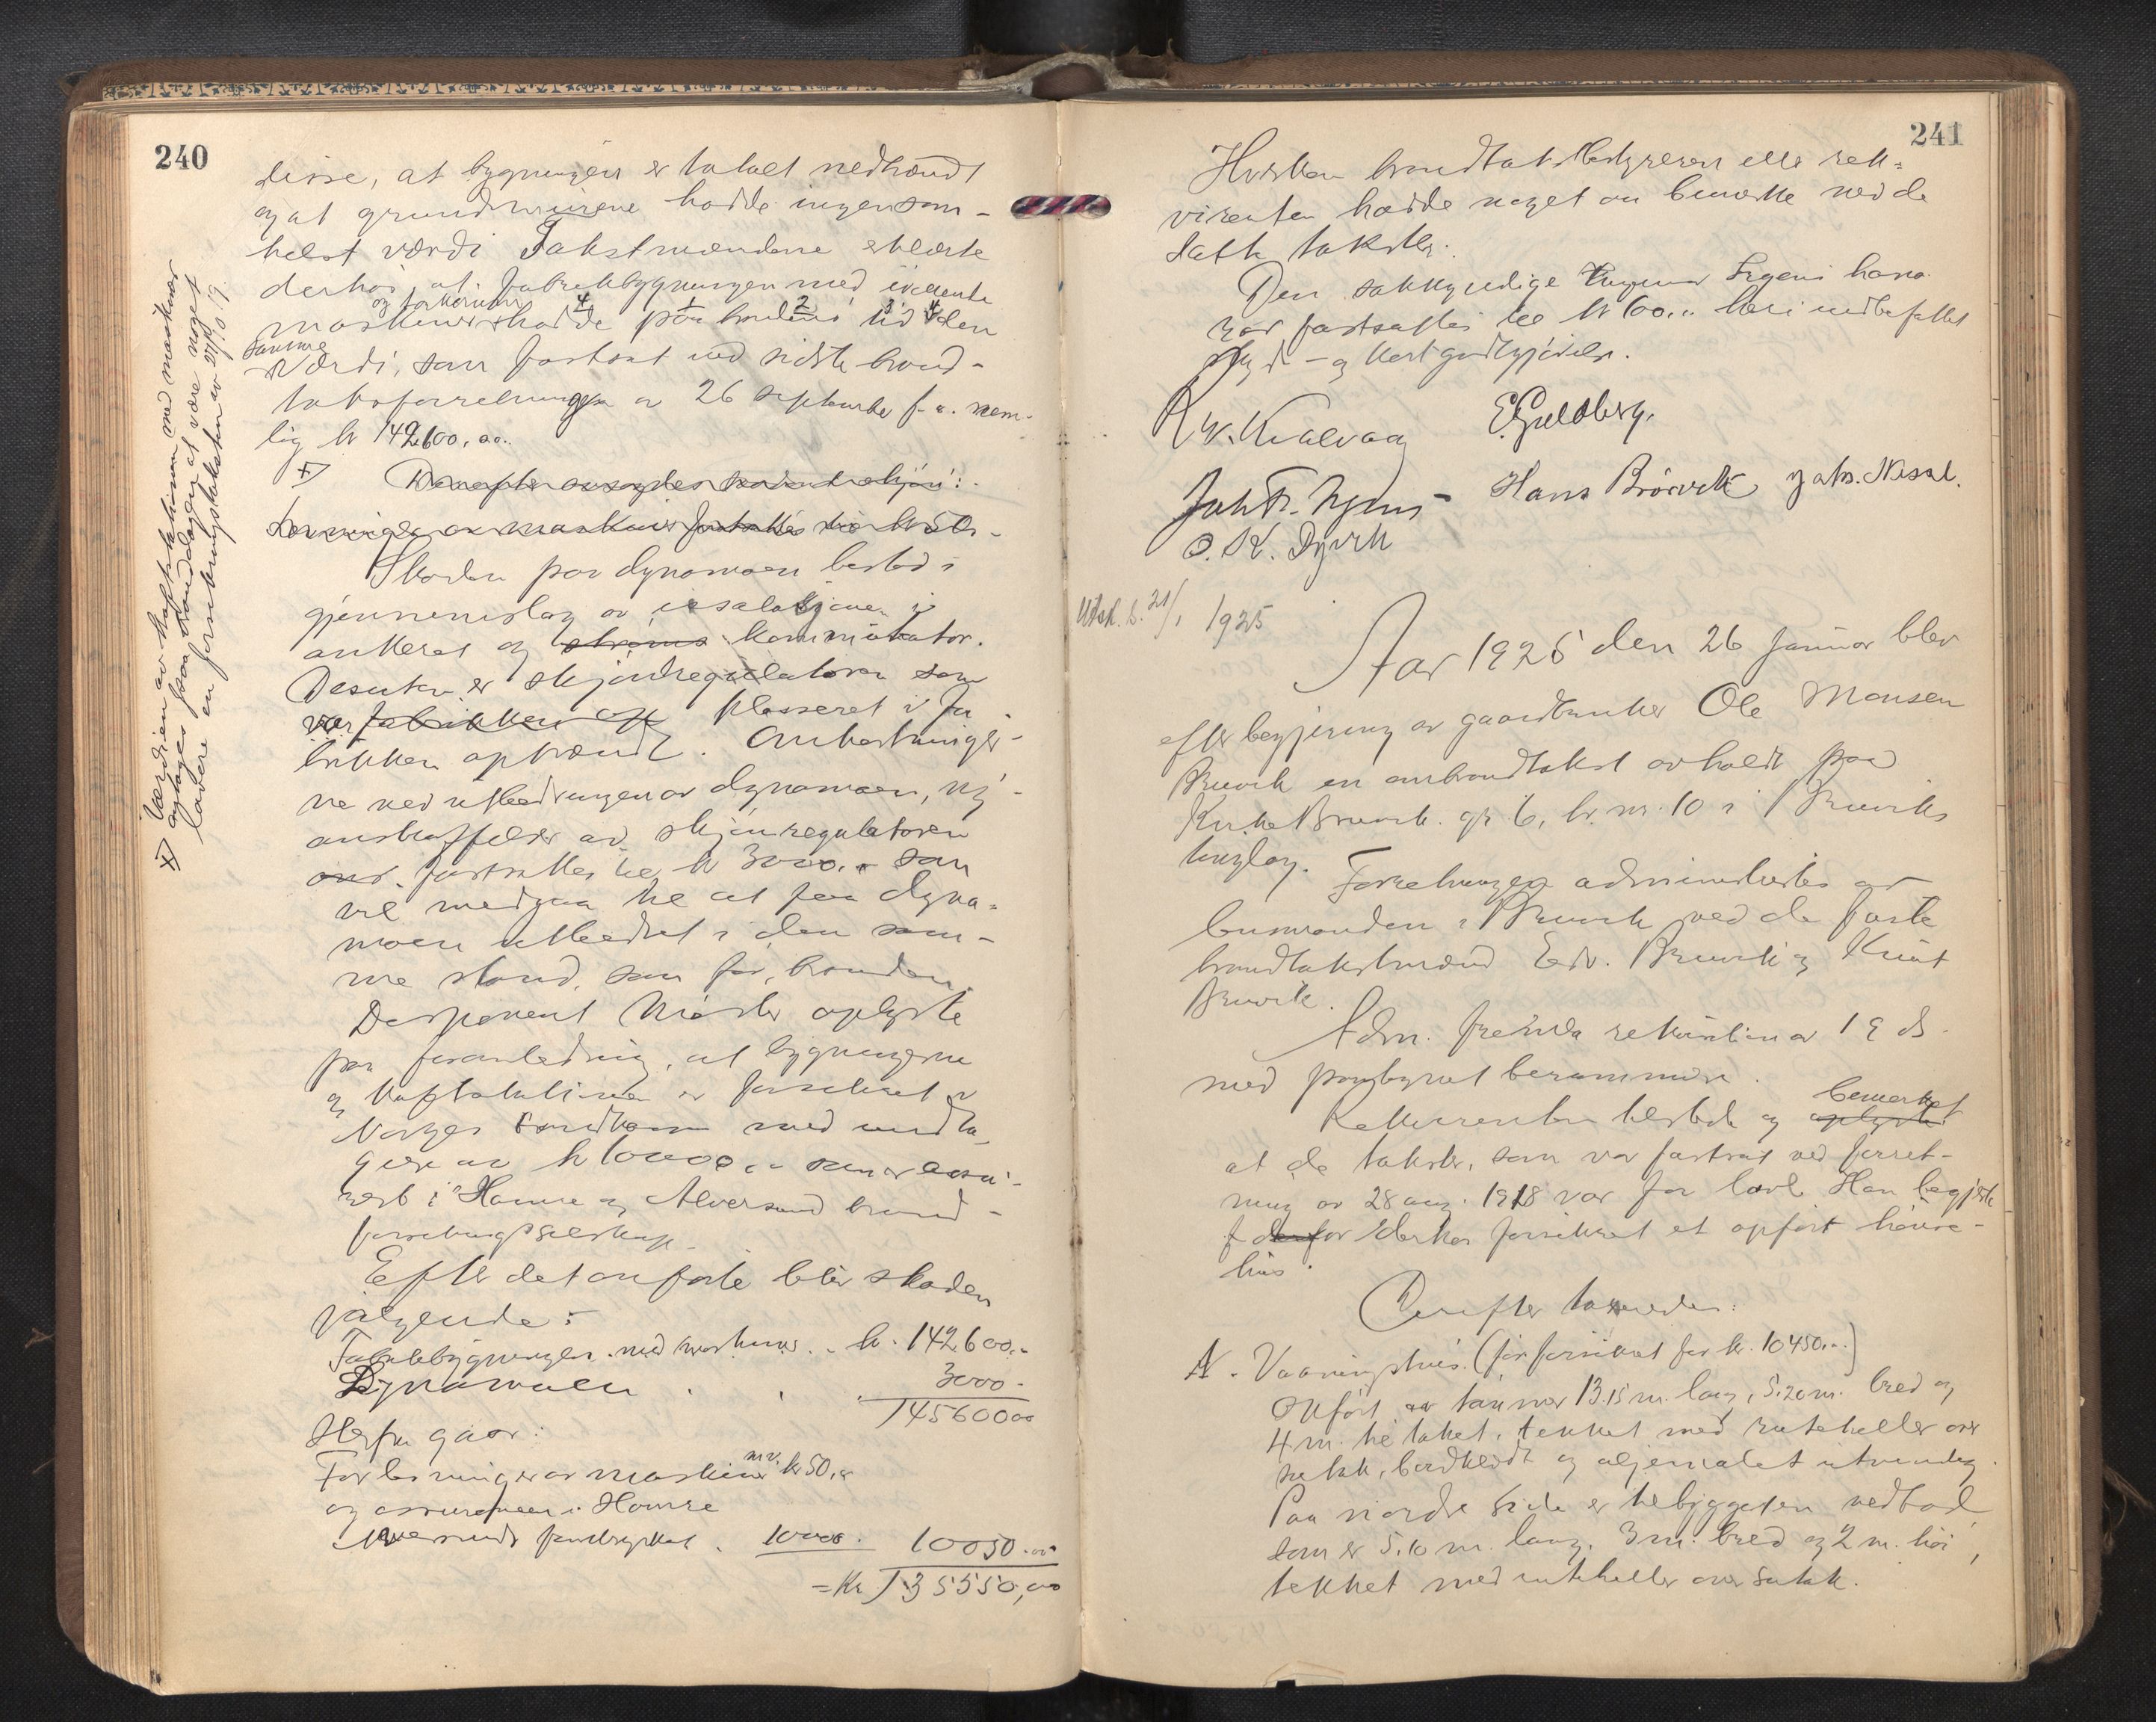 240
disse, at bygningen er totalt nedbrændt
og at grundmurene hadde ingensom-
helst værdi Takstmændene erklærte
derhos, at fabrikbygningen med
maskiner hadde paa brandens tid den
samme
værdi, som fastsat ved sidste brand-
takstforretningen av 26 september f. a. nem-
lig kr 142600,00.
Skaden paa dynamoen bestod i
gjennemslag av isolasjonen i
ankeret og kommutator.
Desuten er skjøndregulatoren som
var plasseret i fa-
brikken opbrændt. Omkostninger-
ne ved utbedringen av dynamoen, ny-
anskaffelse av skjønregulatoren
fastsattes til kr 3000,- som
vil medgaa til at faa dyna-
moen utbedret i den sam-
me stand, som før branden.
Disponent oplyste
paa foranledning, at bygningerne
og kraftstationen er forsikret i
Norges Brandkasse med undta-
gelse av kr 10000,- som er assu-
rert i Hamre og Alversund brand-
forsikringsselskap.
Efter det anførte blir skaden
følgende:
Fabrikbygningen med maskiner - kr. 142600.-
Dynamoen 3000.-
145600 00
Herfra gaar:
For levninger av maskiner m.v. kr 50,-
og assurancen i Hamre
Alversunds 10000. 10050.00
= Kr 135550,00
x) Værdien av kraftstationen med maskiner
antages paa branddagen at være noget
lavere en forsikringstaksten av 27/9 0 19.
241
Hverken brandtakstbestyreren elle rek-
virenten hadde noget at bemerke ved de
satte takster.
Den sakkyndige hono-
rar fastsattes til kr 60.- heri indbefattet
skyds- og kostgodtgjørelse.
R W. Kvalvaag E. Guldberg.
Hans Brørvik
O. K. Dyvik
Utsk. b. 21/1 1925
Aar 1925 den 26 januar blev
efter begjæring av gaardbruker Ole Monsen
Bruvik en ombrandtakst avholdt paa
Kirke Bruvik. gr. 6, br. nr. 10 i Bruviks
tinglag. Forretningen administrertes av
lensmanden i Bruvik ved de faste
brandtakstmænd Edv. Bruvik og Knut
Bruvik.
Adm. fremla rekvisition av 19 ds
med paabyrnet berammelse.
Rekvirenten tilstede og bemerket
at de takster, som var fastsat ved forret-
ning av 28 aug. 1918 var for lavt. Han begjærte
derhos forsikret et opført hønse-
hus.
Derefter takseredes:
A. Vaaningshus. (før forsikret for kr. 10450,-)
Opført av tømmer 13.15 m. lang, 5,20 m. bred og
4 m. til taket, tekket med rutheller over
sutak, bordklædt og oljemalet utvendig.
Paa nordre side er tilbygget en vedbod
som er 5.10 m. lang, 3 m. bred og 2 m. høi,
tekket med rutheller over sutak.